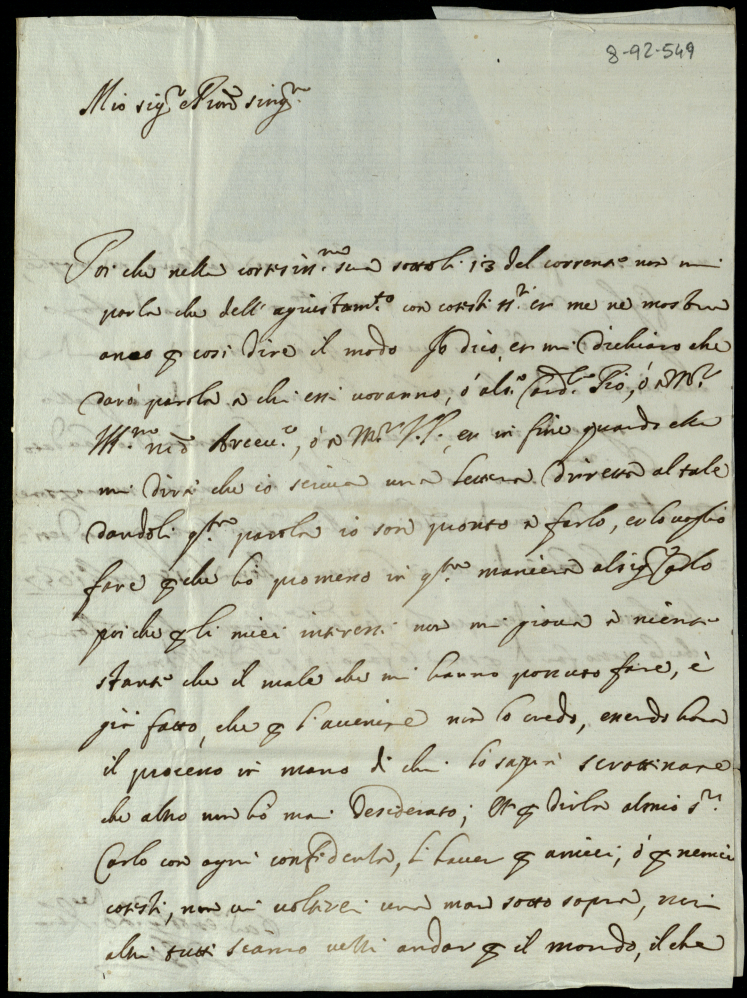 8-92-549
Mio sig.re e Pron sing.re
Poi che nella cortesiss.ma sua sotto li 13 del corrente non mi
parla che dell'agiustam.to con cotesti ss.ri et me ne mostra
anco p cosi dire il modo Jo dico, et mi dichiaro che
darò parola a chi essi voranno, ò al s.r Card.le Pio, ò a M.r
Ill.mo Arceu.o, ò a M.r et in fine quando ella
mi dirà che io scriva una lettera diretta al tale
dandoli qsta parola io son pronto a farlo, et lo voglio
fare p che hò promesso in qsta maniera al sig.r Carlo
poi che p gli miei interessi non mi giova a niente
stante che il male che mi hanno possuto fare, è
già fatto, che p l'avenire non lo credo, essendo hora
il processo in mano di chi lo saprà scrottinare
che altro non hò mai desiderato; Et p dirla al mio s.r
Carlo con ogni confidenza, l'haver p amici, ò p nemici
cotesti, non mi volterei una man sotto sopra, noi
altri tutti siamo andar p il mondo, il che